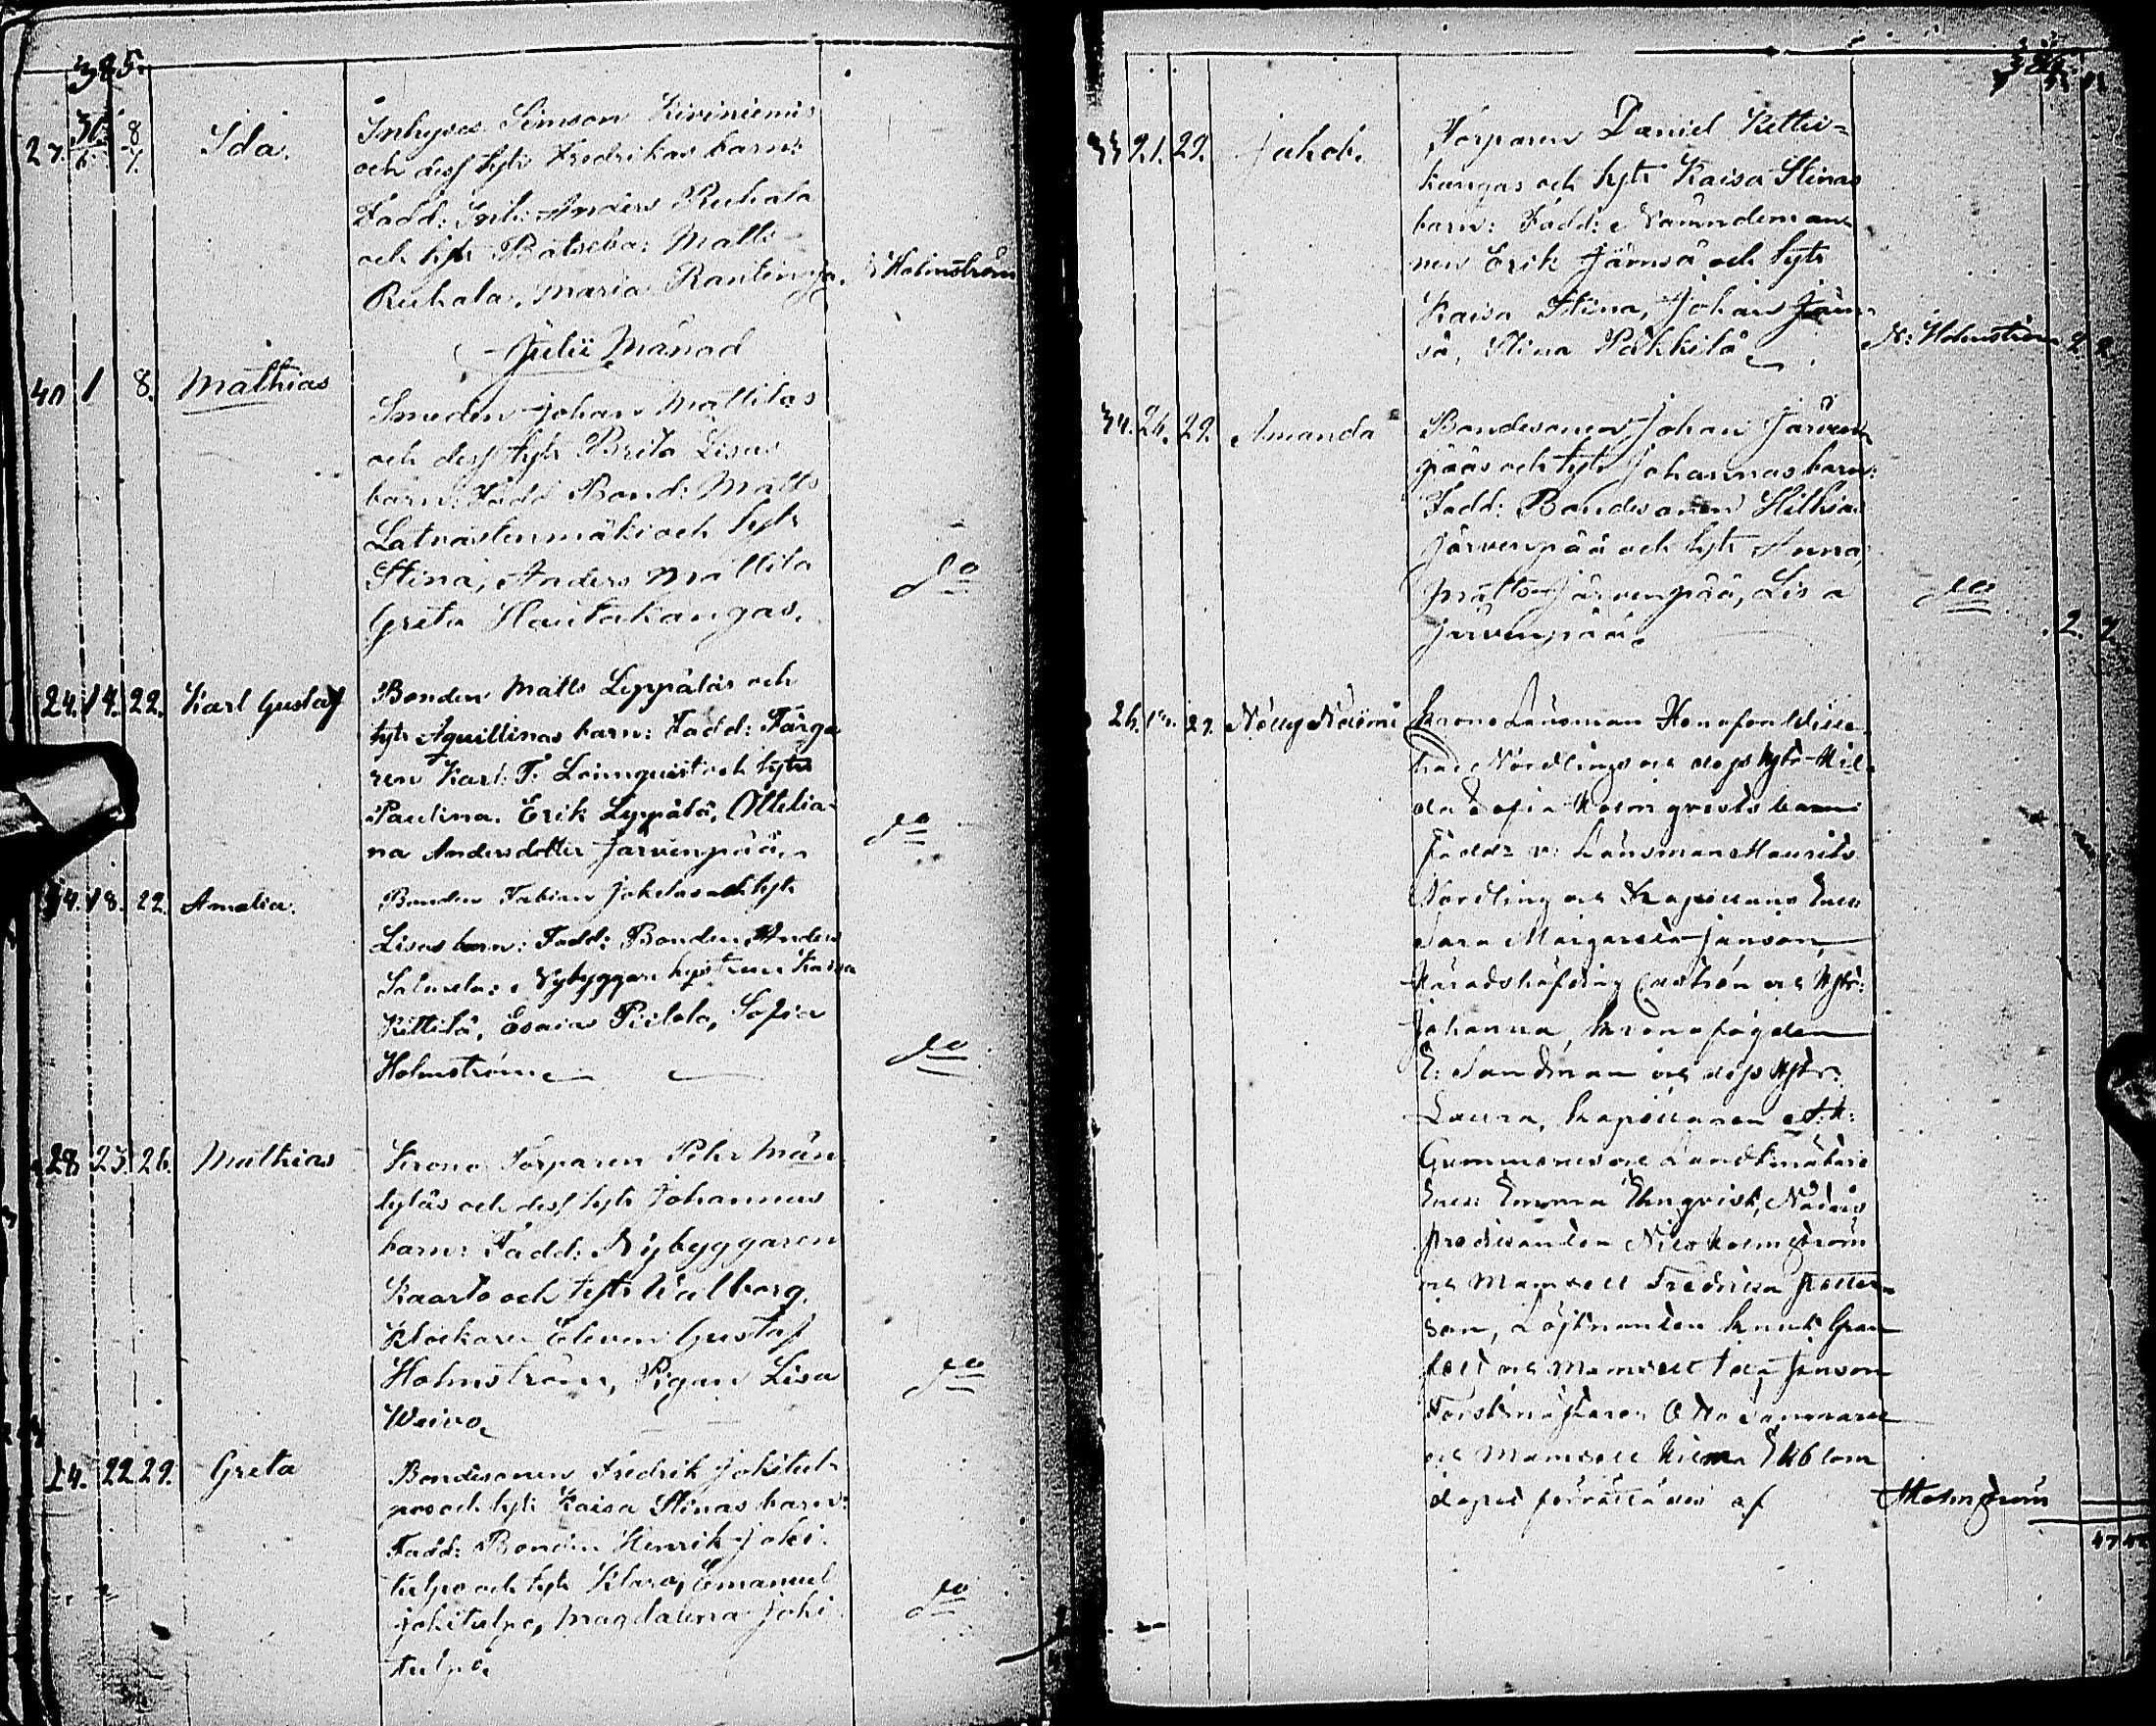 385.
27. 30/6. 8/7. Ida. Inhyses Simson Kiviniemis
och dess hstr Fredrikas barn:
Fadd: Inh: Anders Ruhala
och hstr Batseba: Matts
Ruhala, Maria Rantinoja. Holmström
Julii Månad
40 1 8. Mathias
Smeden Johan Mattilas
och dess hstr Brita Lisas
barn: Fadd Bond: Matts
Latvastenmäki och hstr
Stina, Anders Mattila
Greta Hautakangas. do
24. 14. 22. Karl Gustaf Bonden Matts Leppäläs och
hstr Aquilinas barn: Fadd: Färga
ren Karl. F. Lönnquist och hstr
Paulina. Erik Leppälä, Ottilia
na Andersdotter Järvenpää. do
34. 18. 22. Amalia. Bonden Fabian Jokelas och hstr
Lisas barn: Fadd: Bonden Anders
Salmela: Nybyggare hustrun Kaisa
Kittilä, Esaias Pielola, Sofia
Holmström do
28 23. 26. Mathias Krono Torparen Pehr Män
tyläs och dess hstr Johannas
barn: Fadd: Nybyggaren
Kaarto och hstr Walborg,
Klockare Eleven Gustaf
Holmström, Pigan Lisa do
Weivo
24. 22 29. Greta Bondesonen Fredrik Jokitul-
pos och hstr Kaisa Stinas barn:
Fadd: Bonden Henrik Joki
tulpo och hstr Klara, Emanuel
Jokitulpo, Magdalena Joki do
tulpo.
384.
33 21. 29. Jakob. Torparen Daniel Kettu=
kangas och hstr Kaisa Stinas
barn: Fadd: Nämndeman
nen Erik Jämsä och hstr
Kaisa Stina, Johan Jäm
sä, Stina Päkkilä N: Holmström 2 2
34. 24. 29. Amanda Bondesonen Johan Järven
pääs och hstr Johannas barn:
Fadd: Bondesonen Hilkias
Järvenpää och hstr Anna,
Matts Järvenpää, Lisa do
Järvenpää. 2. 2
26. 27. Nelly Naimi Krono Länsman
Nordlings och dess hstr Hil
da Sofia Holmqvists barn
Fadd: v: Länsman Maurits
Nordling och Kapellans Enka
Sara Margareta Janson,
Häradshöfding Castrén och hstr:
Johanna, Kronofogden
E: Sandman och dess hstr:
Laura, Kapellanen
Gummerus och Landtmätare
Enka Emma Elmqvist, Nådårs
predikanten Nils Holmström
och Mamsell Fredrika Petter
son, Löjtnanten Knut Gran
felt och Mamsell Ida Janson
Forstmästaren Otto
och Mamsell Ekblom
dopet förrättades af Holmström